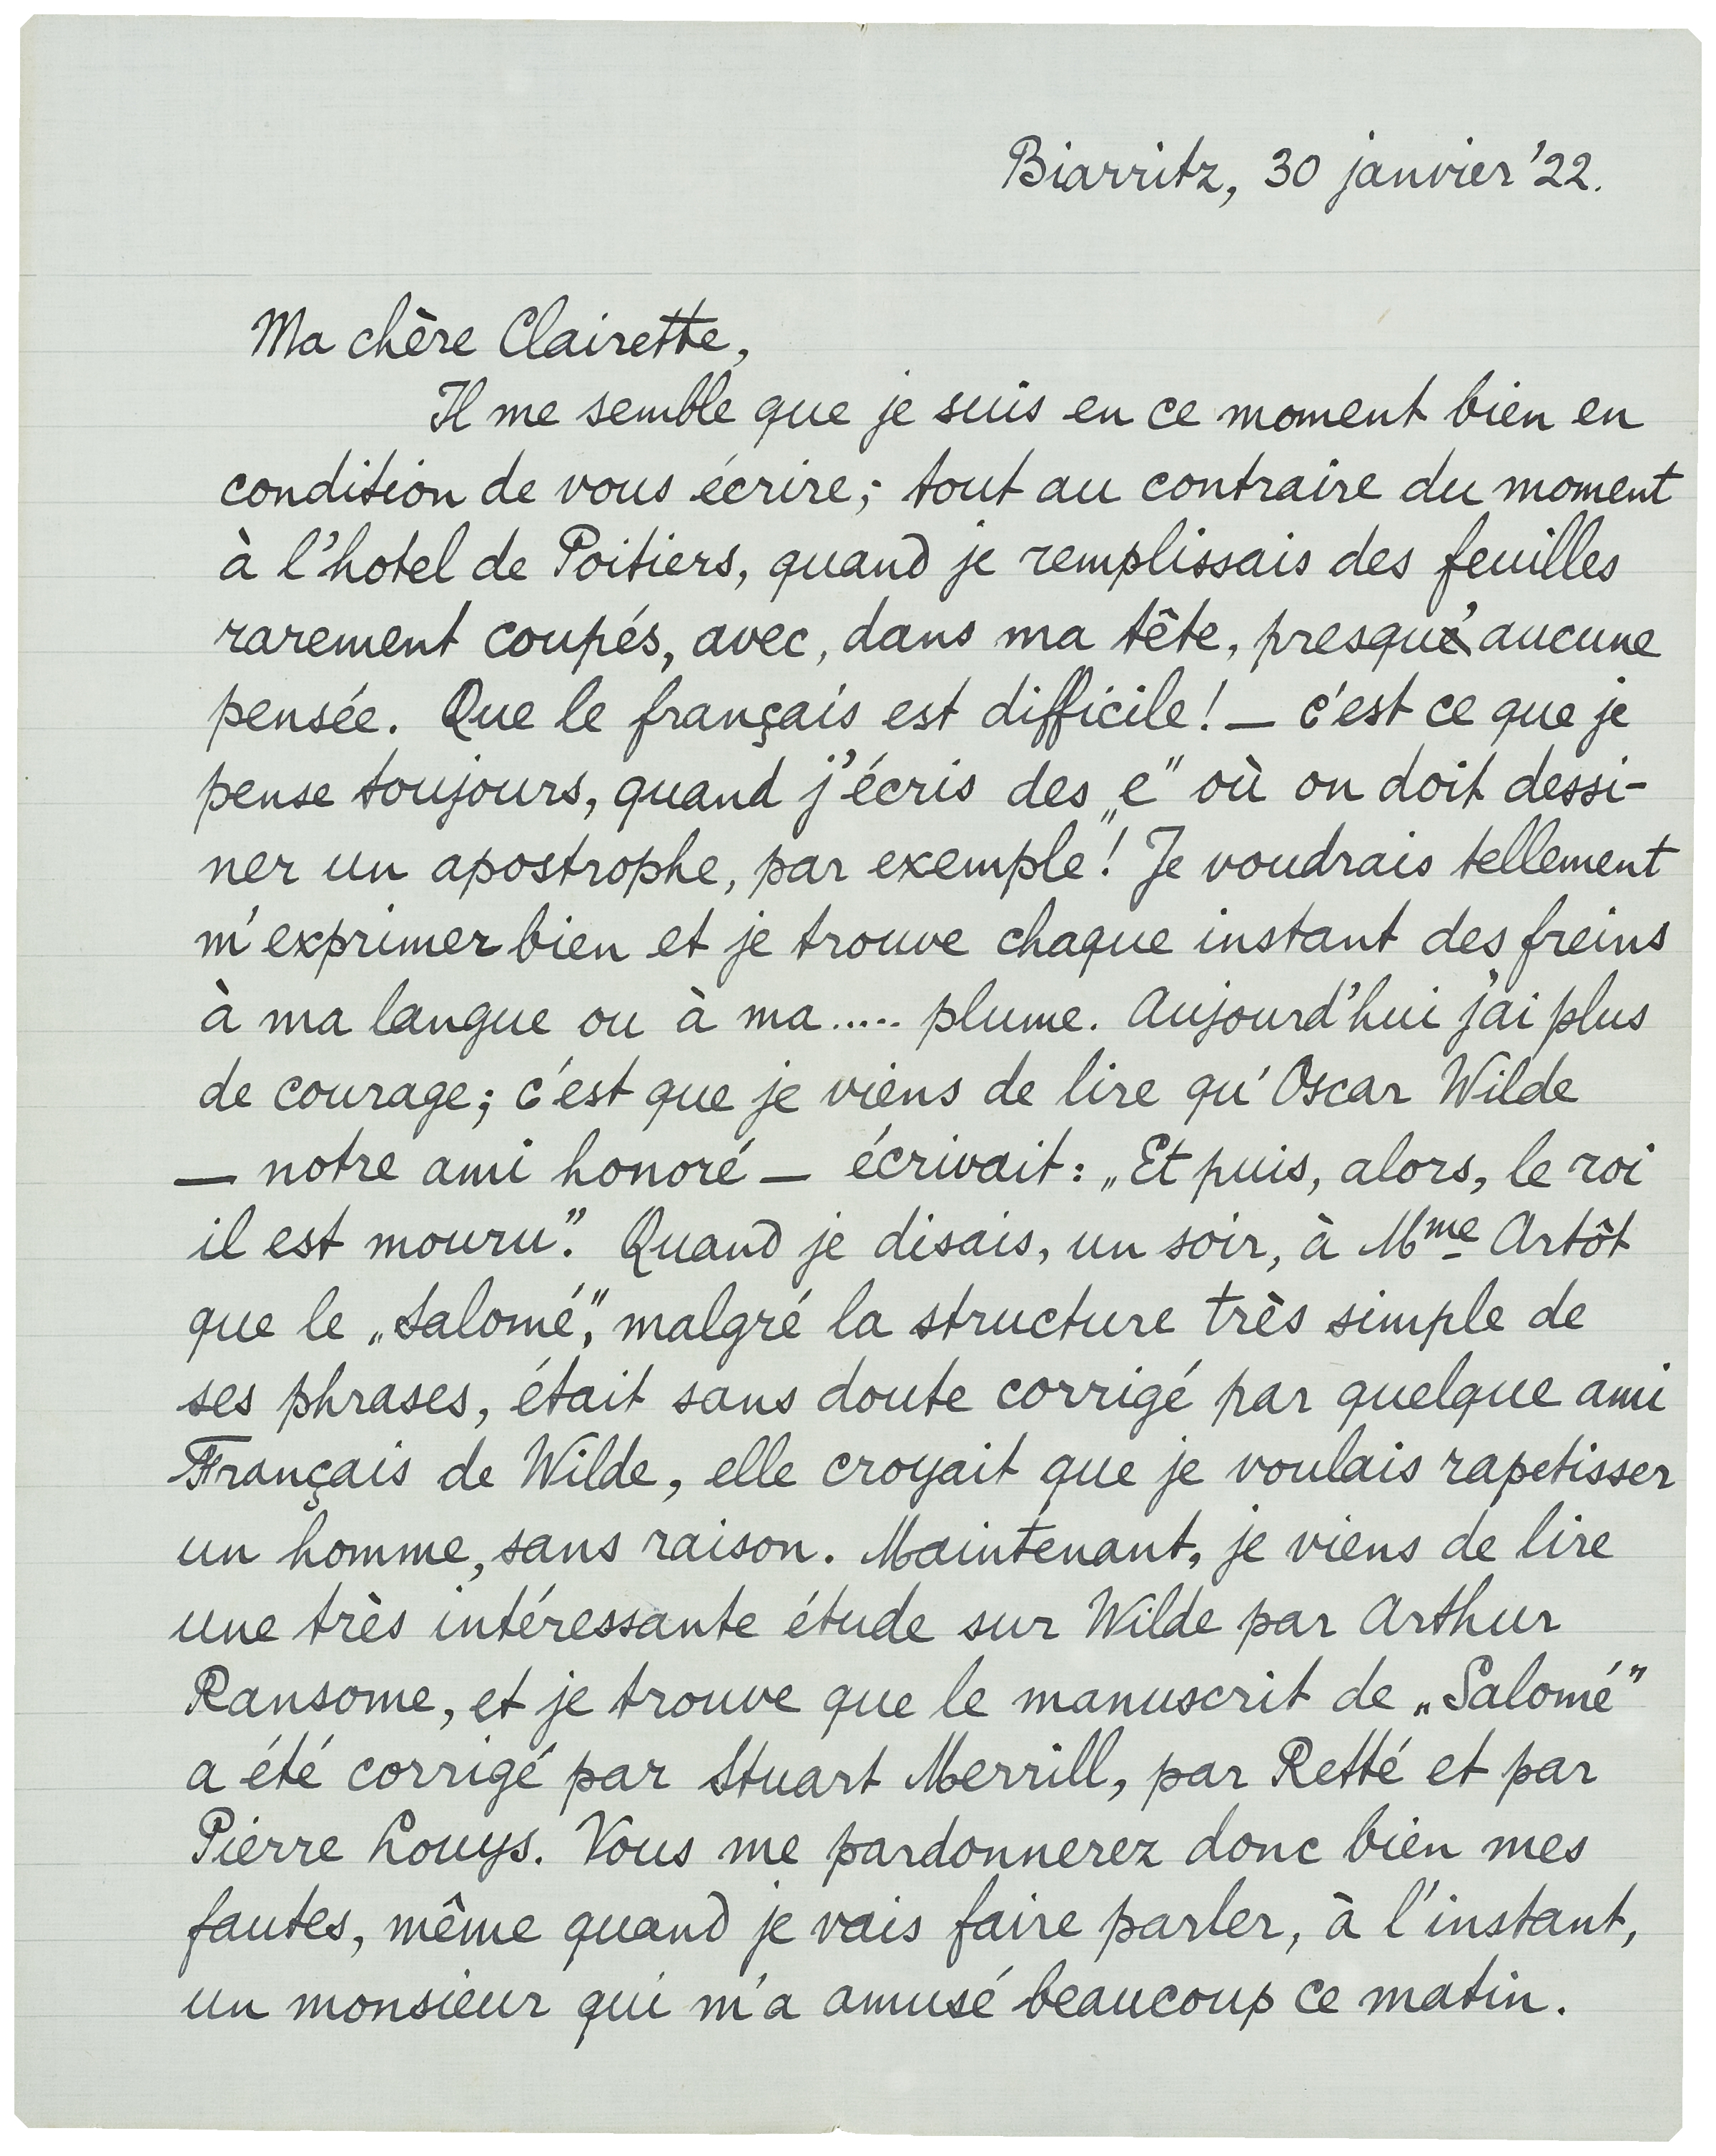 Biarritz, 30 janvier '22.
Ma chère Clairette,
Il me semble que je suis en ce moment bien en
condition de vous écrire; tout au contraire du moment
à l'hotel de Poitiers, quand je remplissais des feuilles
rarement coupés, avec, dans ma tête, presqu' aucune
pensée. Que le français est difficile! — c'est ce que je
pense toujours, quand j'écris des „e" où on doit dessi-
ner un apostrophe, par exemple! Je voudrais tellement
m'exprimer bien et je trouve chaque instant des freins
à ma langue ou à ma..... plume. Aujourd'hui j'ai plus
de courage; c'est que je viens de lire qu'Oscar Wilde
— notre ami honoré — écrivait: „Et puis, alors, le roi
il est mouru". Quand je disais, un soir, à Mme Artôt
que le „Salomé", malgré la structure très simple de
ses phrases, était sans doute corrigé par quelque ami
Français de Wilde, elle croyait que je voulais rapetisser
un homme, sans raison. Maintenant, je viens de lire
une très intéressante étude sur Wilde par Arthur
Ransome, et je trouve que le manuscrit de „Salomé"
a été corrigé par Stuart Merrill, par Retté et par
Pierre Louys. Vous me pardonnerez donc bien mes
fautes, même quand je vais faire parler, à l'instant,
un monsieur qui m'a amusé beaucoup ce matin.